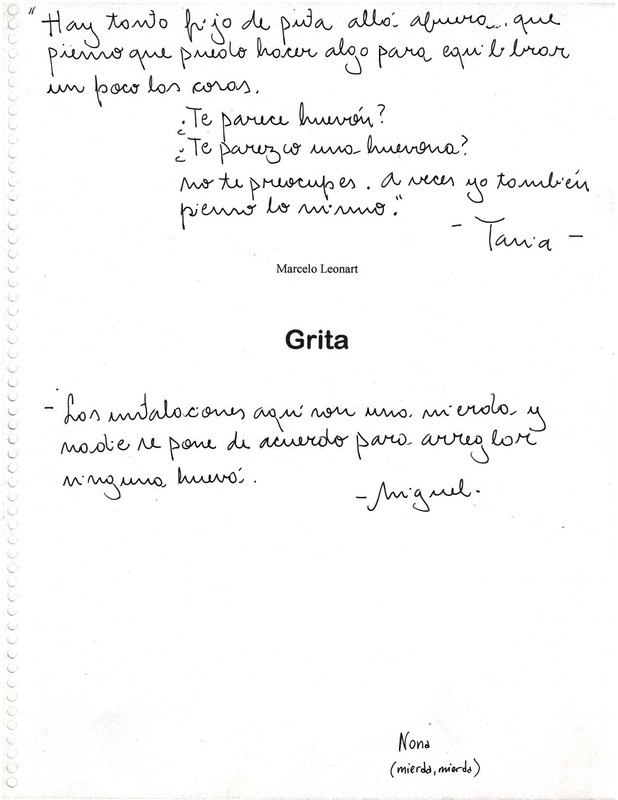 "Hay tanto hijo de puta allá afuera... que
pienso que puedo hacer algo para equilibrar
un poco las cosas.
¿Te parece huevón?
¿Te parezco una huevona?
no te preocupes. A veces yo también
pienso lo mismo."
- Tania -
Marcelo Leonart
Grita
- Las instalaciones aquí son una mierda y
nadie se pone de acuerdo para arreglar
ninguna huevá.
- Miguel.
Nona
(mierda, mierda)